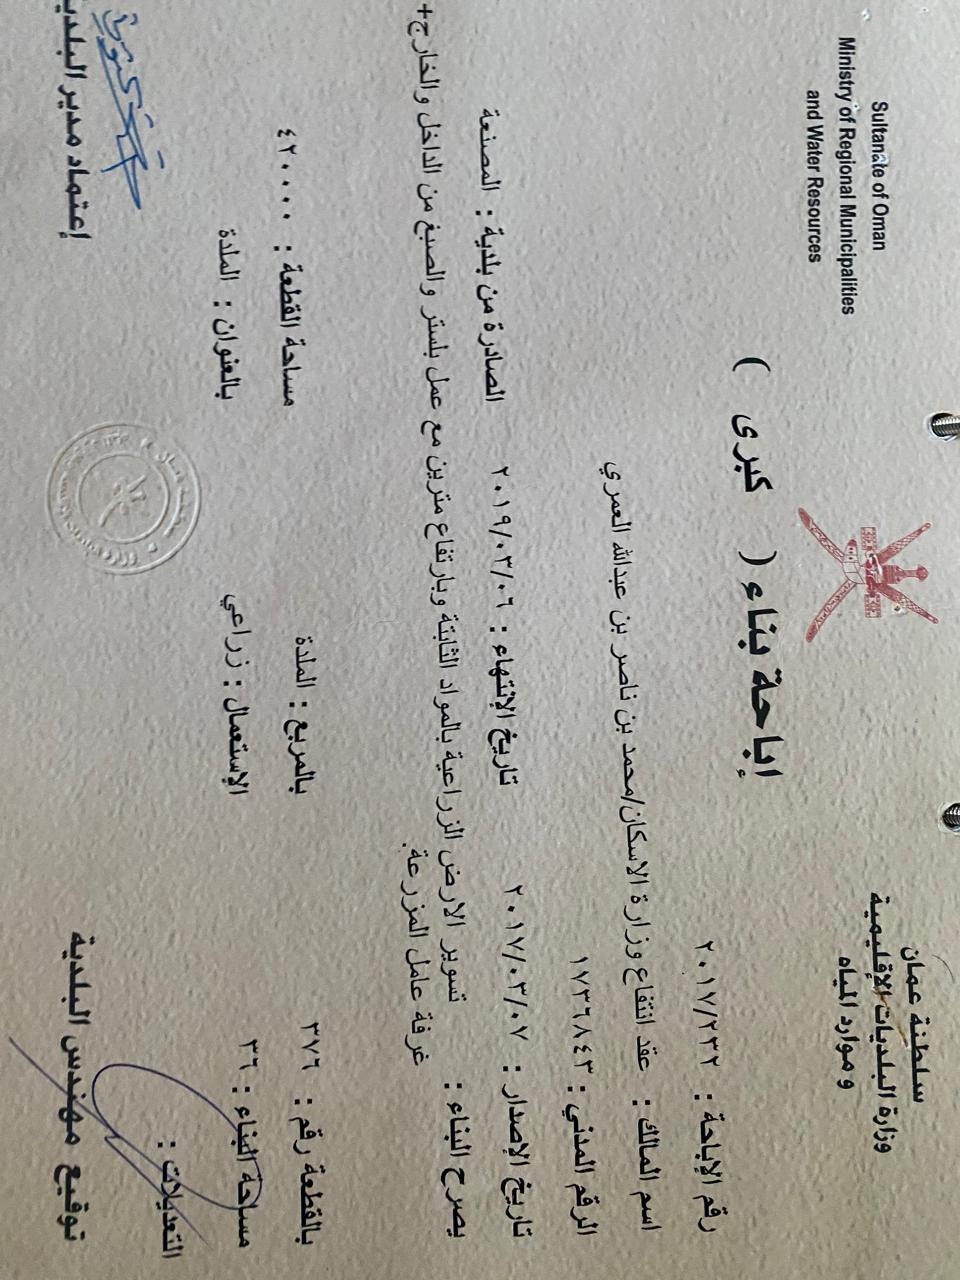 Sultanate of Oman
Ministry of Regional Municipalities
and Water Resources
سلطنة عمان
وزارة البلديات الإقليمية
وموارد المياه
إباحة بناء ( كبرى )
رقم الإباحة : ٢٠١٧/٢٣٢
اسم المالك : عقد انتفاع وزارة الاسكان/محمد بن ناصر بن عبدالله العمري
الرقم المدني : ١٧٣٦٨٤٣
تاريخ الإصدار : ٢٠١٧/٠٣/٠٧ تاريخ الإنتهاء : ٢٠١٩/٠٣/٠٦ الصادرة من بلدية : المصنعة
يصرح البناء : تسوير الارض الزراعية بالمواد الثابتة وبارتفاع مترين مع عمل بلستر والصبغ من الداخل والخارج+
غرفة عامل المزرعة.
بالقطعة رقم : ٣٧٦ بالمربع : الملدة مساحة القطعة : ٤٢٠٠٠٠
مساحة البناء : ٣٦ الإستعمال : زراعي بالعنوان : الملدة
التعديلات :
توقيع مهندس البلدية إعتماد مدير البلدية